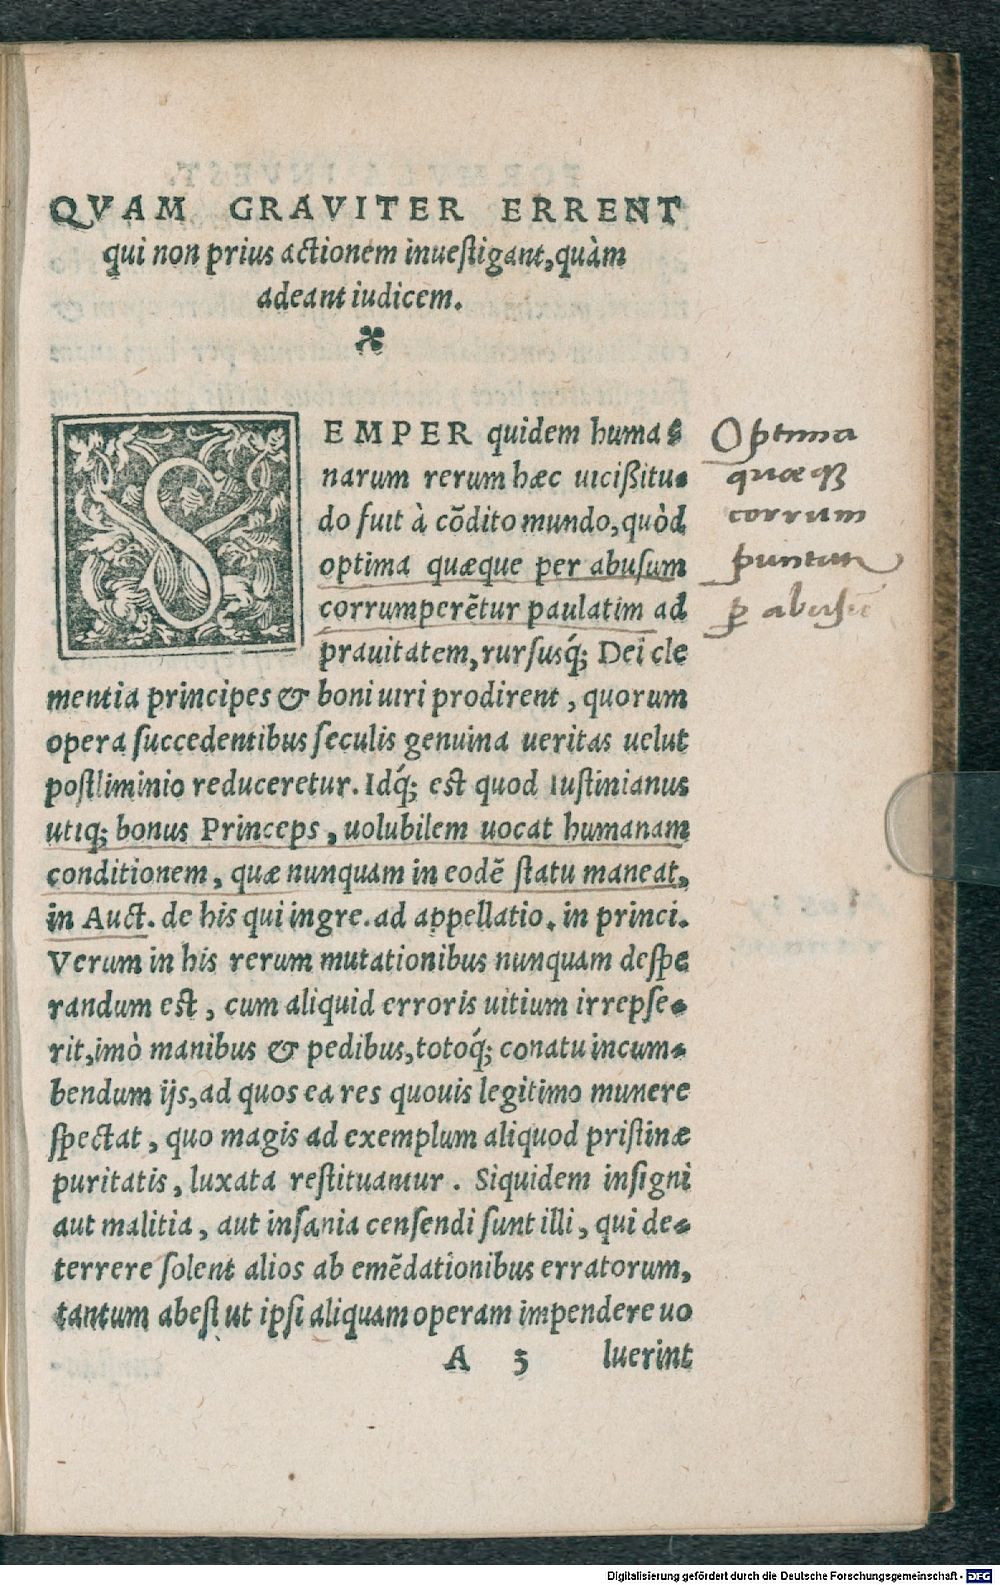 QVAM GRAVITER ERRENT
qui non prius actionem inuestigant, quàm
adeant iudicem.
SEMPER quidem huma-
narum rerum hæc uicißitu-
do fuit à cōdito mundo, quòd
optima quæque per abusum
corrumperētur paulatim ad
prauitatem, rursusq́; Dei cle
mentia principes & boni uiri prodirent, quorum
opera succedentibus seculis genuina ueritas uelut
postliminio reduceretur. Idq́; est quod Iustinianus
utiq; bonus Princeps, uolubilem uocat humanam
conditionem, quæ nunquam in eodē statu maneat,
in Auct. de his qui ingre. ad appellatio. in princi.
Verum in his rerum mutationibus nunquam despe
randum est, cum aliquid erroris uitium irrepse-
rit, imò manibus & pedibus, totoq́; conatu incum-
bendum ijs, ad quos ea res quouis legitimo munere
spectat, quo magis ad exemplum aliquod pristinæ
puritatis, luxata restituantur. Siquidem insigni
aut malitia, aut insania censendi sunt illi, qui de-
terrere solent alios ab emēdationibus erratorum,
tantum abest ut ipsi aliquam operam impendere uo
A 3 luerint
Optima
quæq3
corrum
puntur
ꝑ abusū
Digitalisierung gefördert durch die Deutsche Forschungsgemeinschaft - DFG